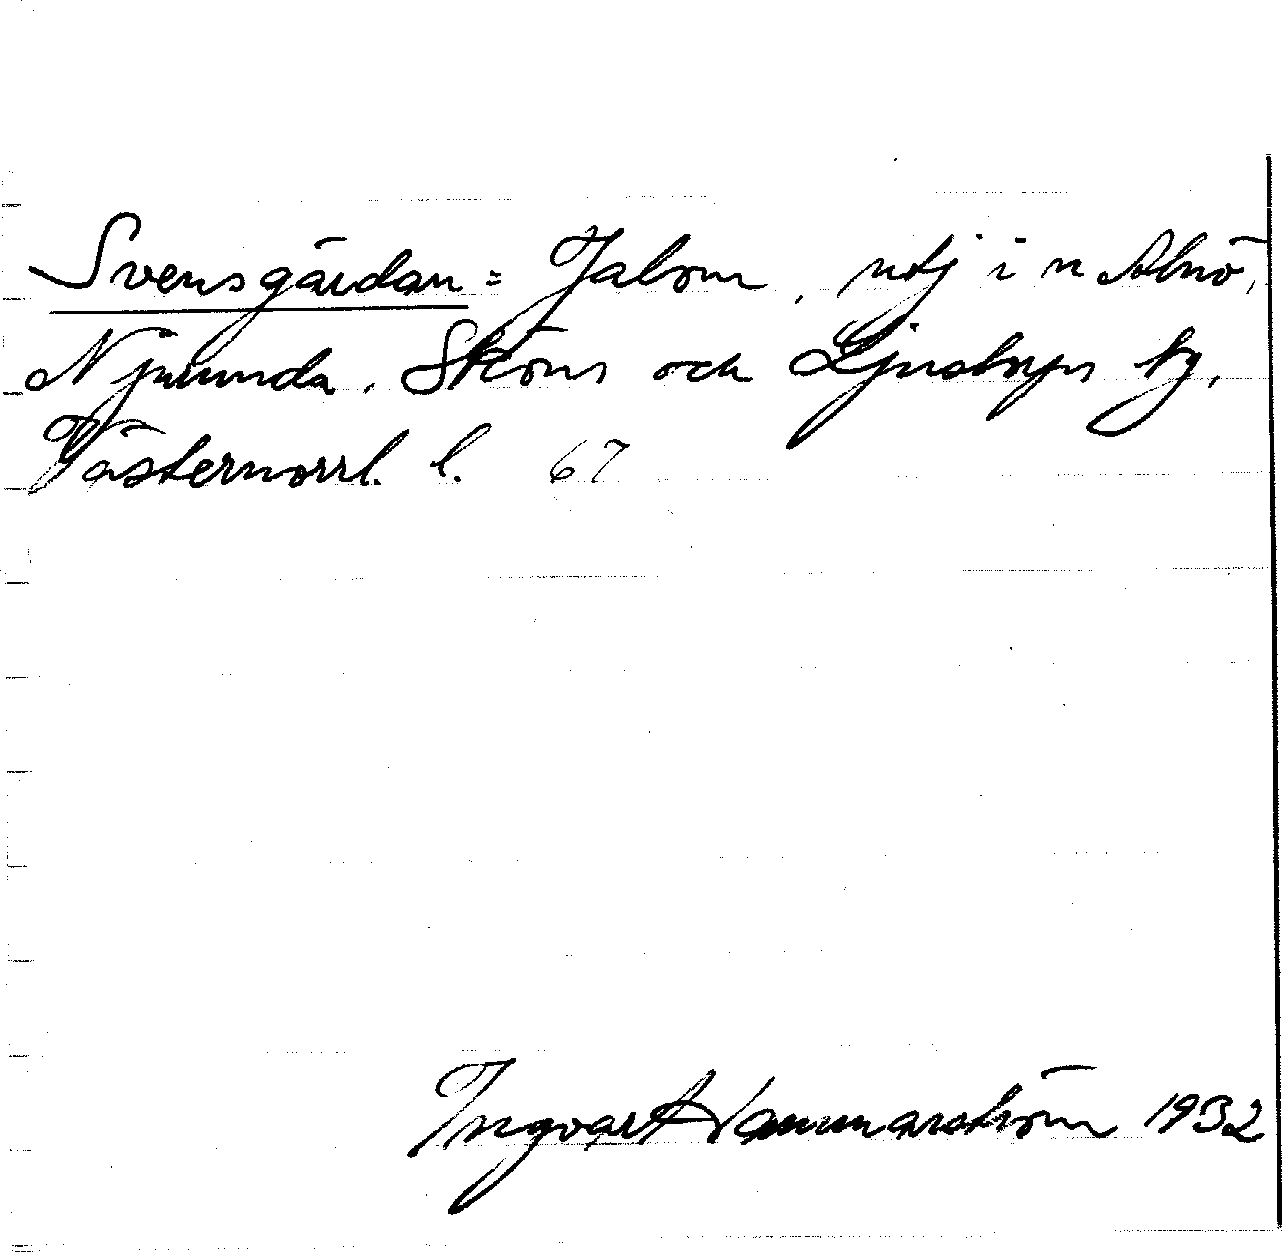 Svensgärdan = Jalom, utj i n Alnö,
Njurunda, Sköns och Ljustorps tg,
Västernorrl. l. 67
Ingvar Hammarström 1932